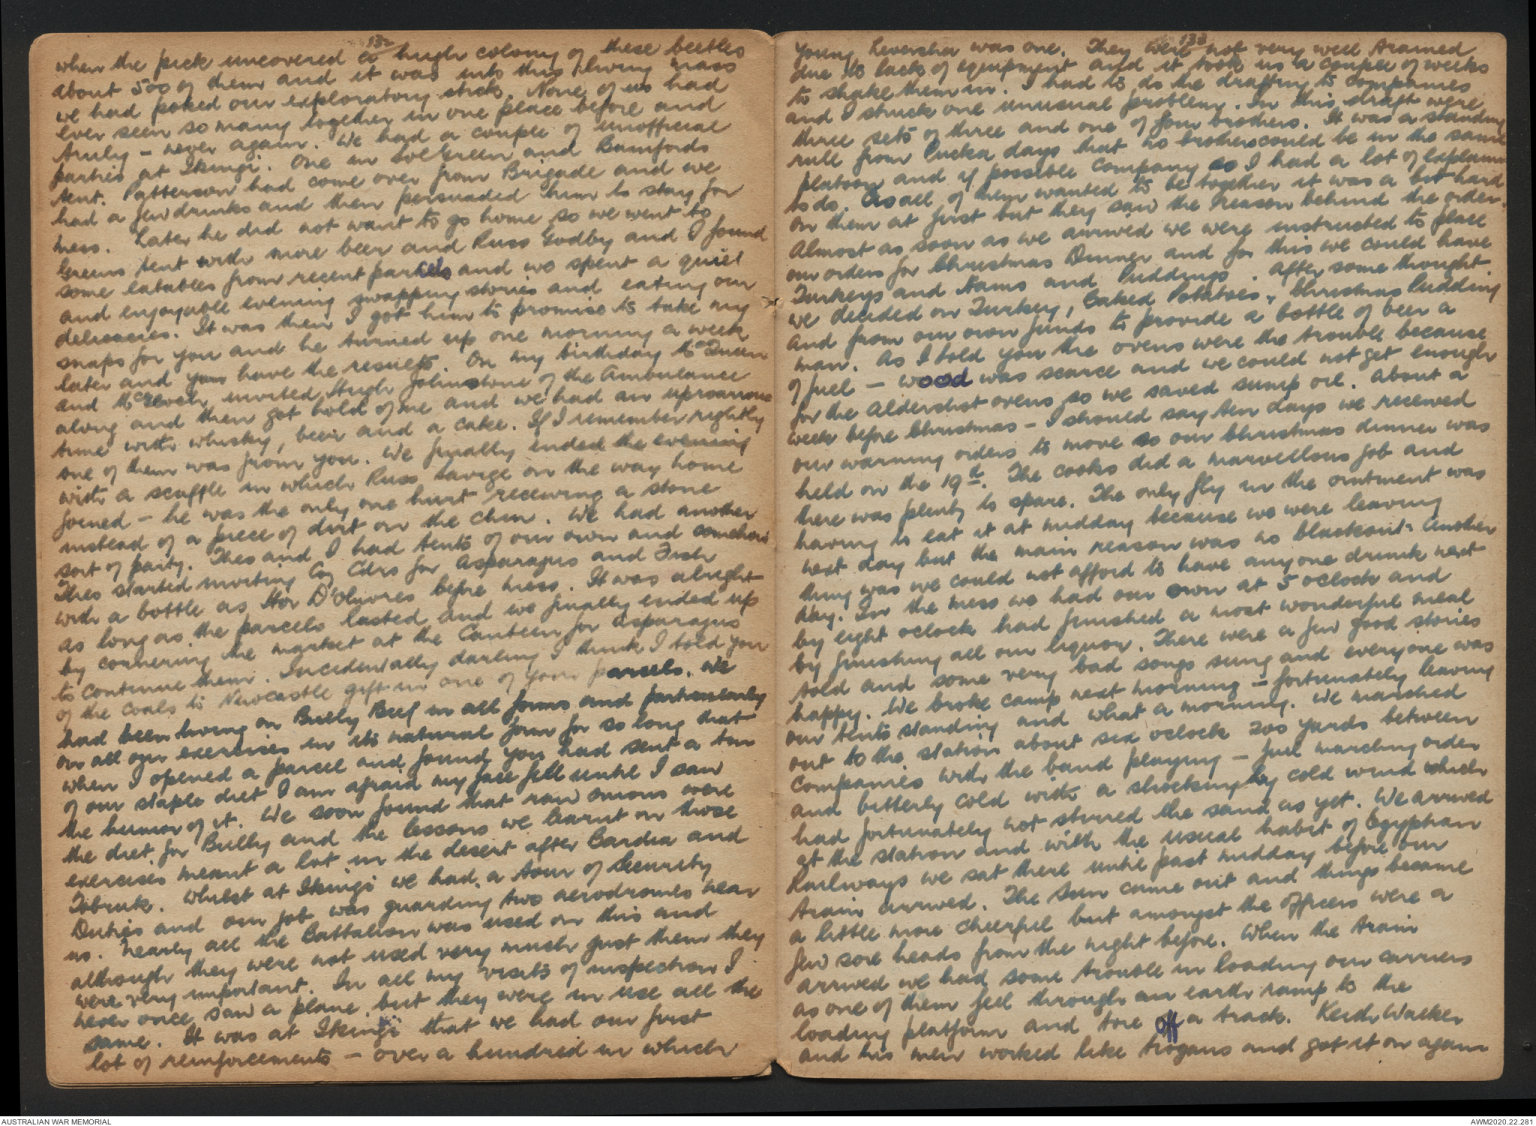 132
when the pick uncovered a hugh colony of these beetles
about 500 of them and it was into this living mass
we had poked our exploratory sticks. None of us had
ever seen so many together in one place before and
truly - never again. We had a couple of unofficial
parties at Ikingi. One in Col Green and Bamfords
tent. Patterson had come over from Brigade and we
had a few drinks and then persuaded him to stay for
mess. Later he did not want to go home so we went to
Greens tent with more beer and Russ Godby and I found
some eatables from recent parcels and we spent a quiet
and enjoyable evening swapping stories and eating our
delicacies. It was then I got him to promise to take my
snaps for you and he turned up one morning a week
later and you have the results. On my birthday
and invited Hugh Johnstone of the Ambulance
along and then got hold of me and we had an uproarious
time with whisky, beer and a cake. If I remember rightly
one of them was from you. We finally ended the evening
with a scuffle in which Russ Savige on the way home
joined - he was the only one hurt receiving a stone
instead of a piece of dirt on the chin. We had another
sort of party. Theo and I had tents of our own and somehow
Theo started inviting Coy Cdrs for Asparagus and Fish
with a bottle as Hor D'Oluvres before mess. It was alright
as long as the parcels lasted and we finally ended up
by cornering the market at the Canteen for asparagus
to continue them. Incidentally darling I think I told you
of the coals to Newcastle gift in one of your parcels. We
had been living on Bully Beef in all forms and particularly
on all our exercises in its natural form for so long that
when I opened a parcel and found you had sent a tin
of our staple diet I am afraid my face fell until I saw
the humor of it. We soon found that raw onions were
the diet for Bully and the lessons we learnt on those
exercises meant a lot in the desert after Bardia and
Tobruk. Whilst at Ikingi we had a tour of Security
Duties and our job was guarding two aerodromes near
us. Nearly all the Battalion was used on this and
although they were not used very much just then they
were very important. In all my visits of inspection I
never once saw a plane but they were in use all the
same. It was at Ikingi that we had our first
lot of reinforcements - over a hundred in which
133
young Leverster was one. They were not very well trained
due to lack of equipment and it took us a couple of weeks
to shake them in. I had to do the drafting to companies
and I struck one unusual problem. In this draft were
three sets of three and one of four brothers. It was a standing
rule from Pucka days that no brothers could be in the same
platoon and if possible company so I had a lot of explaining
to do. As all of them wanted to be together it was a bit hard
on them at first but they saw the reason behind the order.
Almost as soon as we arrived we were instructed to place
our orders for Christmas Dinner and for this we could have
Turkeys and Hams and Puddings. After some thought
we decided on Turkey, Baked Potatoes, Christmas Pudding
and from our own funds to provide a bottle of beer a
man. As I told you the ovens were the trouble because
of fuel - wood was scarce and we could not get enough
for the Aldershot ovens so we saved sump oil. About a
week before Christmas - I should say ten days we received
our warning orders to move so our Christmas dinner was
held on the 19th. The cooks did a marvellous job and
there was plenty to spare. The only fly in the ointment was
having to eat it at midday because we were leaving
next day but the main reason was no blackout. Another
thing was we could not afford to have anyone drunk next
day. In the mess we had our own at 5 oclock and
by eight oclock had finished a most wonderful meal
by finishing all our liquor. There were a few good stories
told and some very bad songs sung and everyone was
happy. We broke camp next morning - fortunately leaving
our tents standing and what a morning. We marched
out to the station about six oclock 200 yards between
Companies with the band playing - full marching order
and bitterly cold with a shockingly cold wind which
had fortunately not stirred the sand as yet. We arrived
at the station and with the usual habit of Egyptian
Railways we sat there until past midday before our
train arrived. The sun came out and things became
a little more cheerful but amongst the officers were a
few sore heads from the night before. When the train
arrived we had some trouble in loading our carriers
as one of them fell through an earth ramp to the
loading platform and tore off a track. Keith Walker
and his men worked like trogans and got it on again
AUSTRALIAN WAR MEMORIAL
AWM2020.22.281